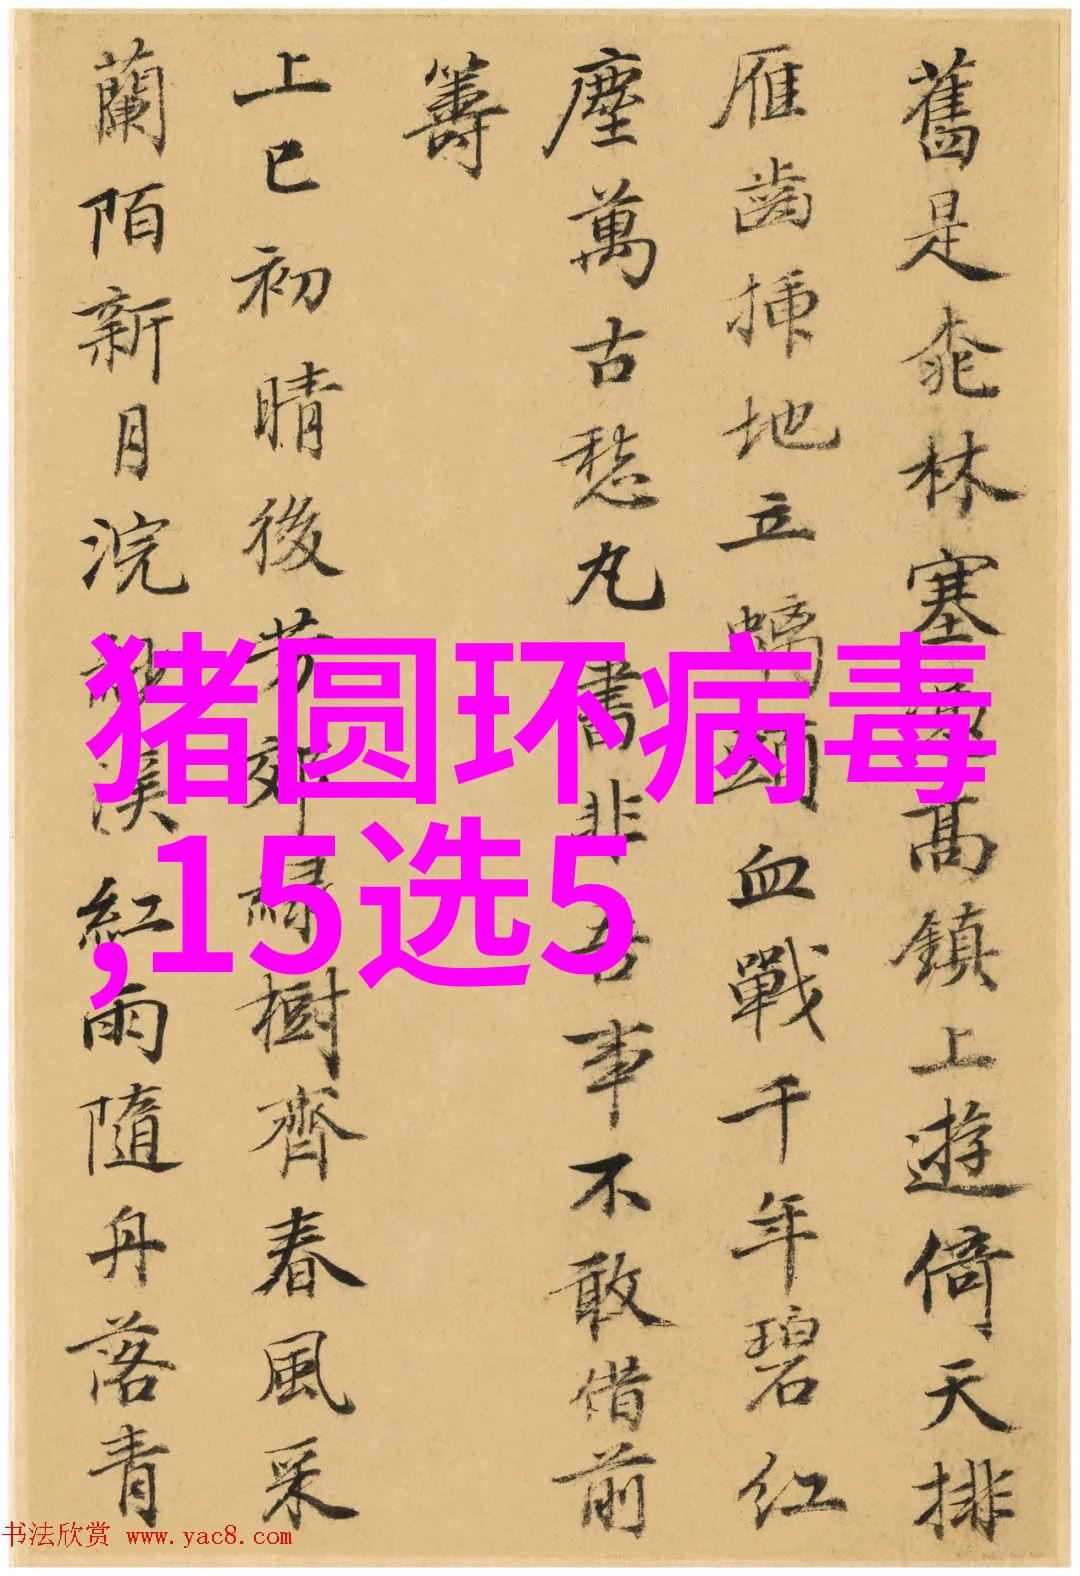 舊是桃林塞垣高鎮上遊倚天排
雁齒插地立螭頭血戰千年碧紅
塵萬古愁丸書非吾事不敢借前
籌
上巳初晴後芳郊緑樹齊春風采
蘭陌新月浣溪紅雨隨舟落青
猪圆环病毒
,15选5
书法欣赏 www.yac8.com